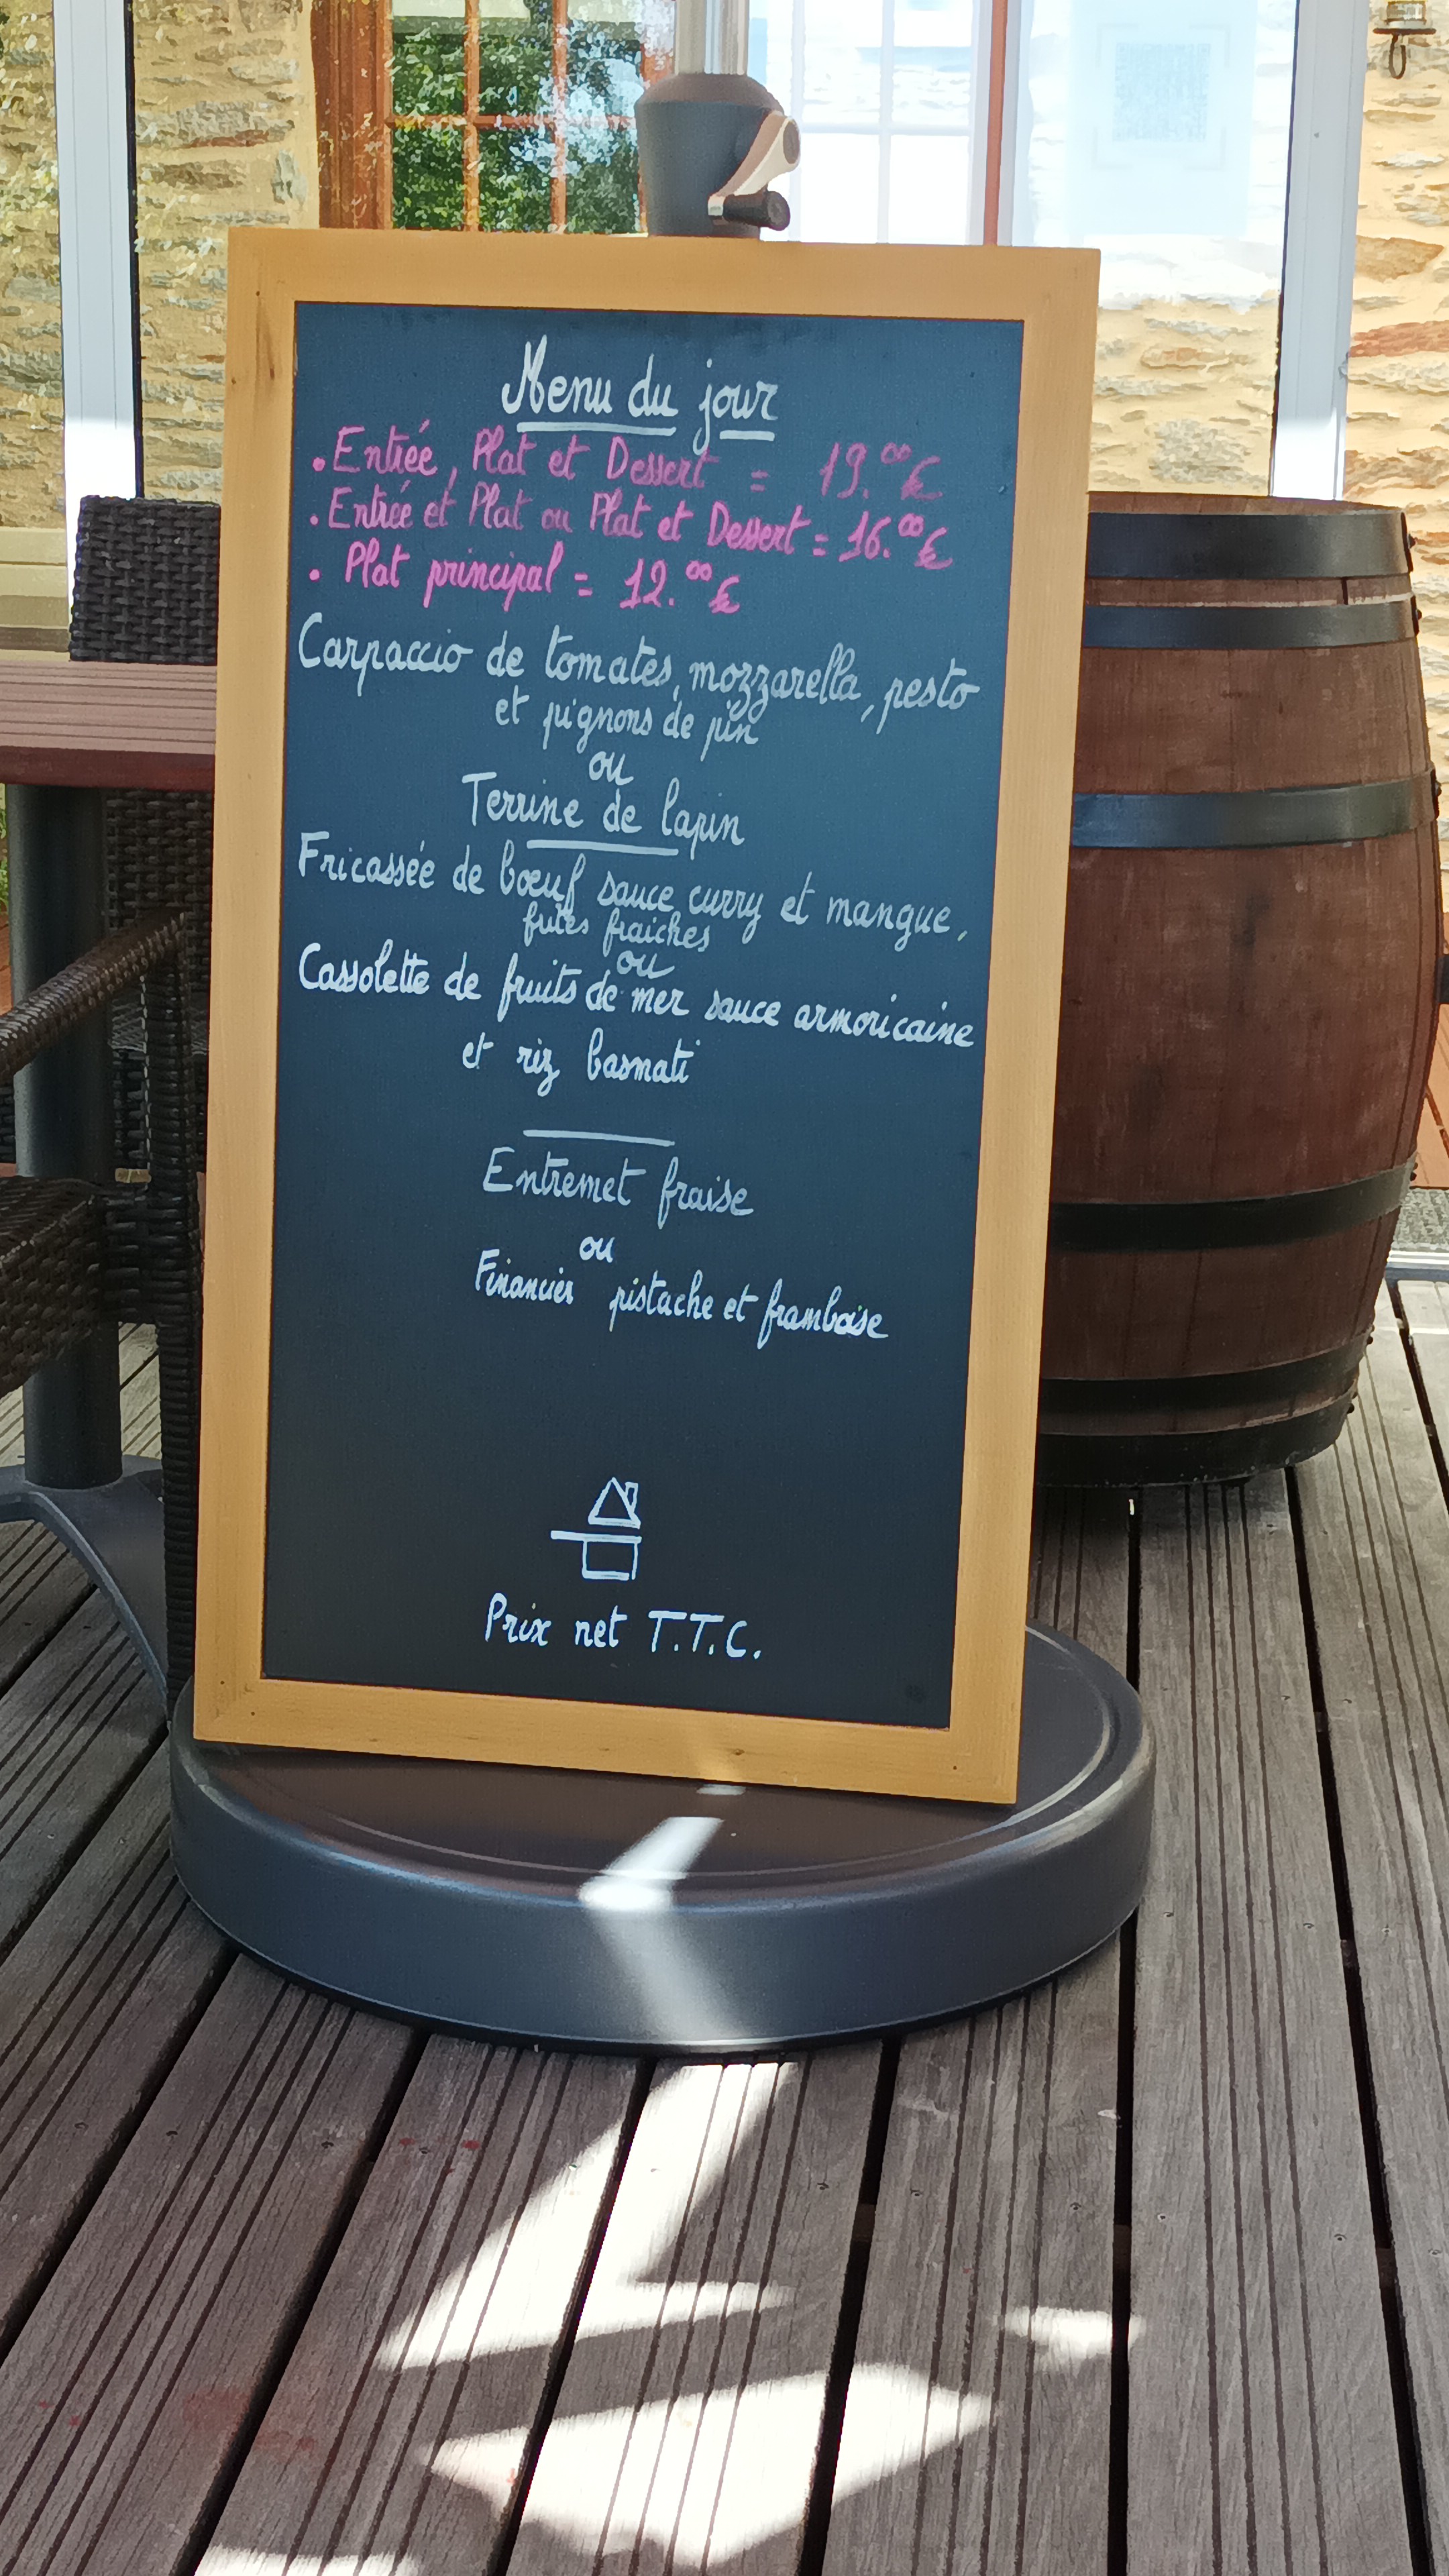 Menu du jour
. Entrée, Plat et Dessert = 19.00 €
. Entrée et Plat ou Plat et Dessert = 16.00 €
. Plat principal = 12.00 €
Carpaccio de tomates, mozzarella, pesto
et pignons de pin
ou
Terrine de lapin
Fricassée de bœuf sauce curry et mangue,
frites fraiches
ou
Cassolette de fruits de mer sauce armoricaine
et riz basmati
Entremet fraise
ou
Financier pistache et framboise
Prix net T.T.C.